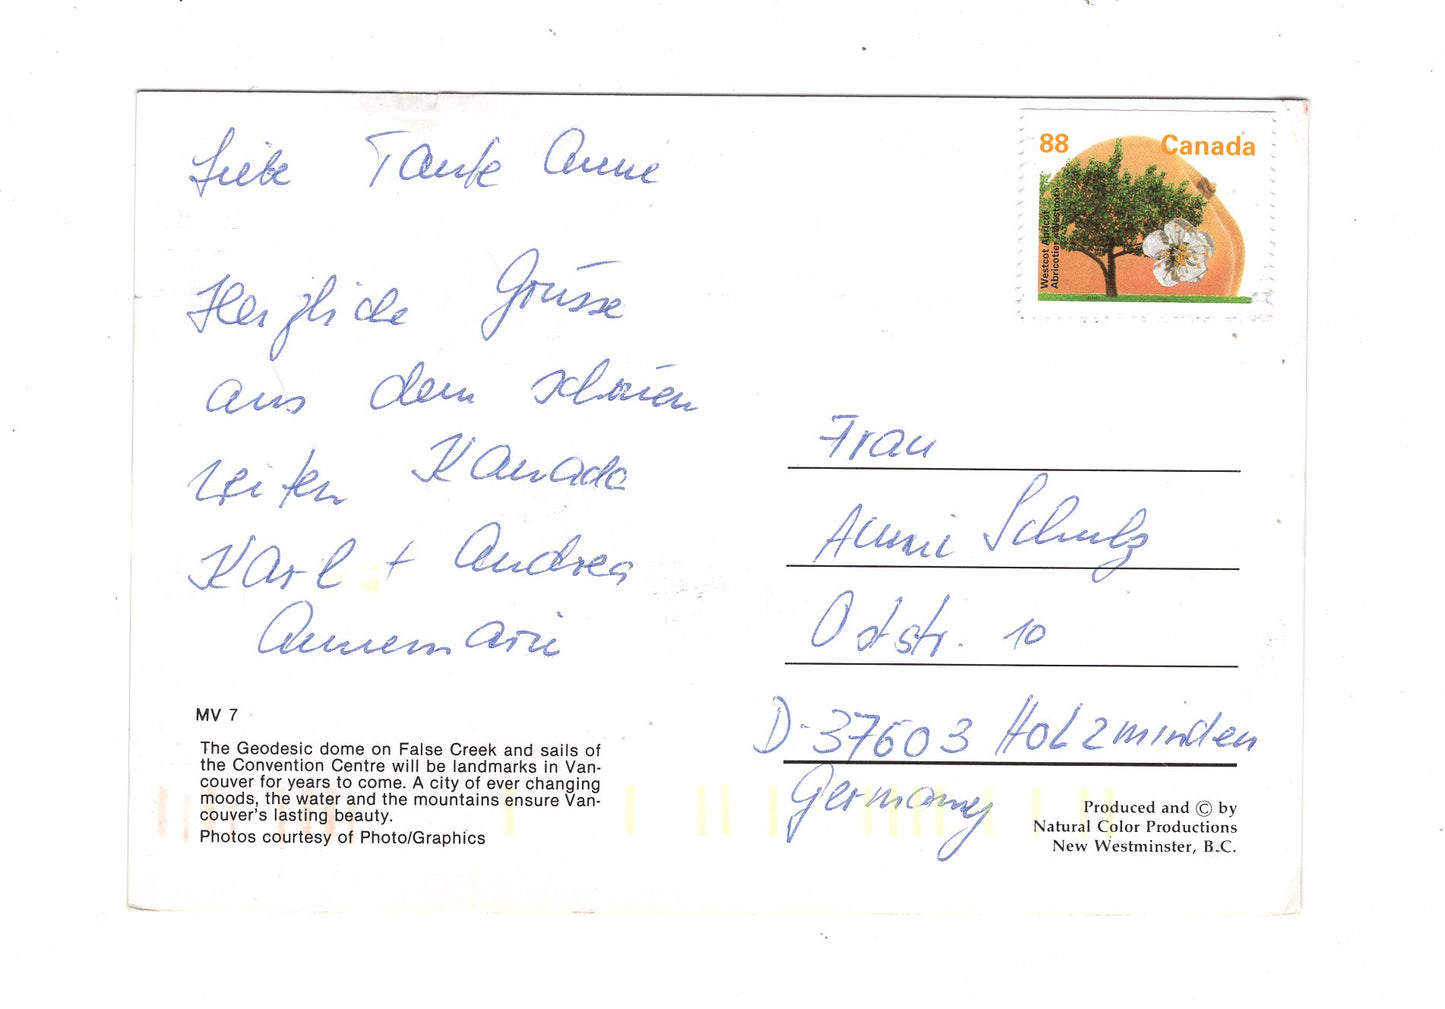 Liebe Tante Anne
Herzliche Grüsse
aus dem schönen
weiten Kanada
Karl + Andrea
Annemarie
MV 7
The Geodesic dome on False Creek and sails of
the Convention Centre will be landmarks in Van-
couver for years to come. A city of ever changing
moods, the water and the mountains ensure Van-
couver's lasting beauty.
Photos courtesy of Photo/Graphics
88 Canada
Westcot Apricot
Abricotier «Westcot»
Frau
Annie Schulz
Oststr. 10
D-37603 Holzminden
Germany
Produced and © by
Natural Color Productions
New Westminster, B.C.